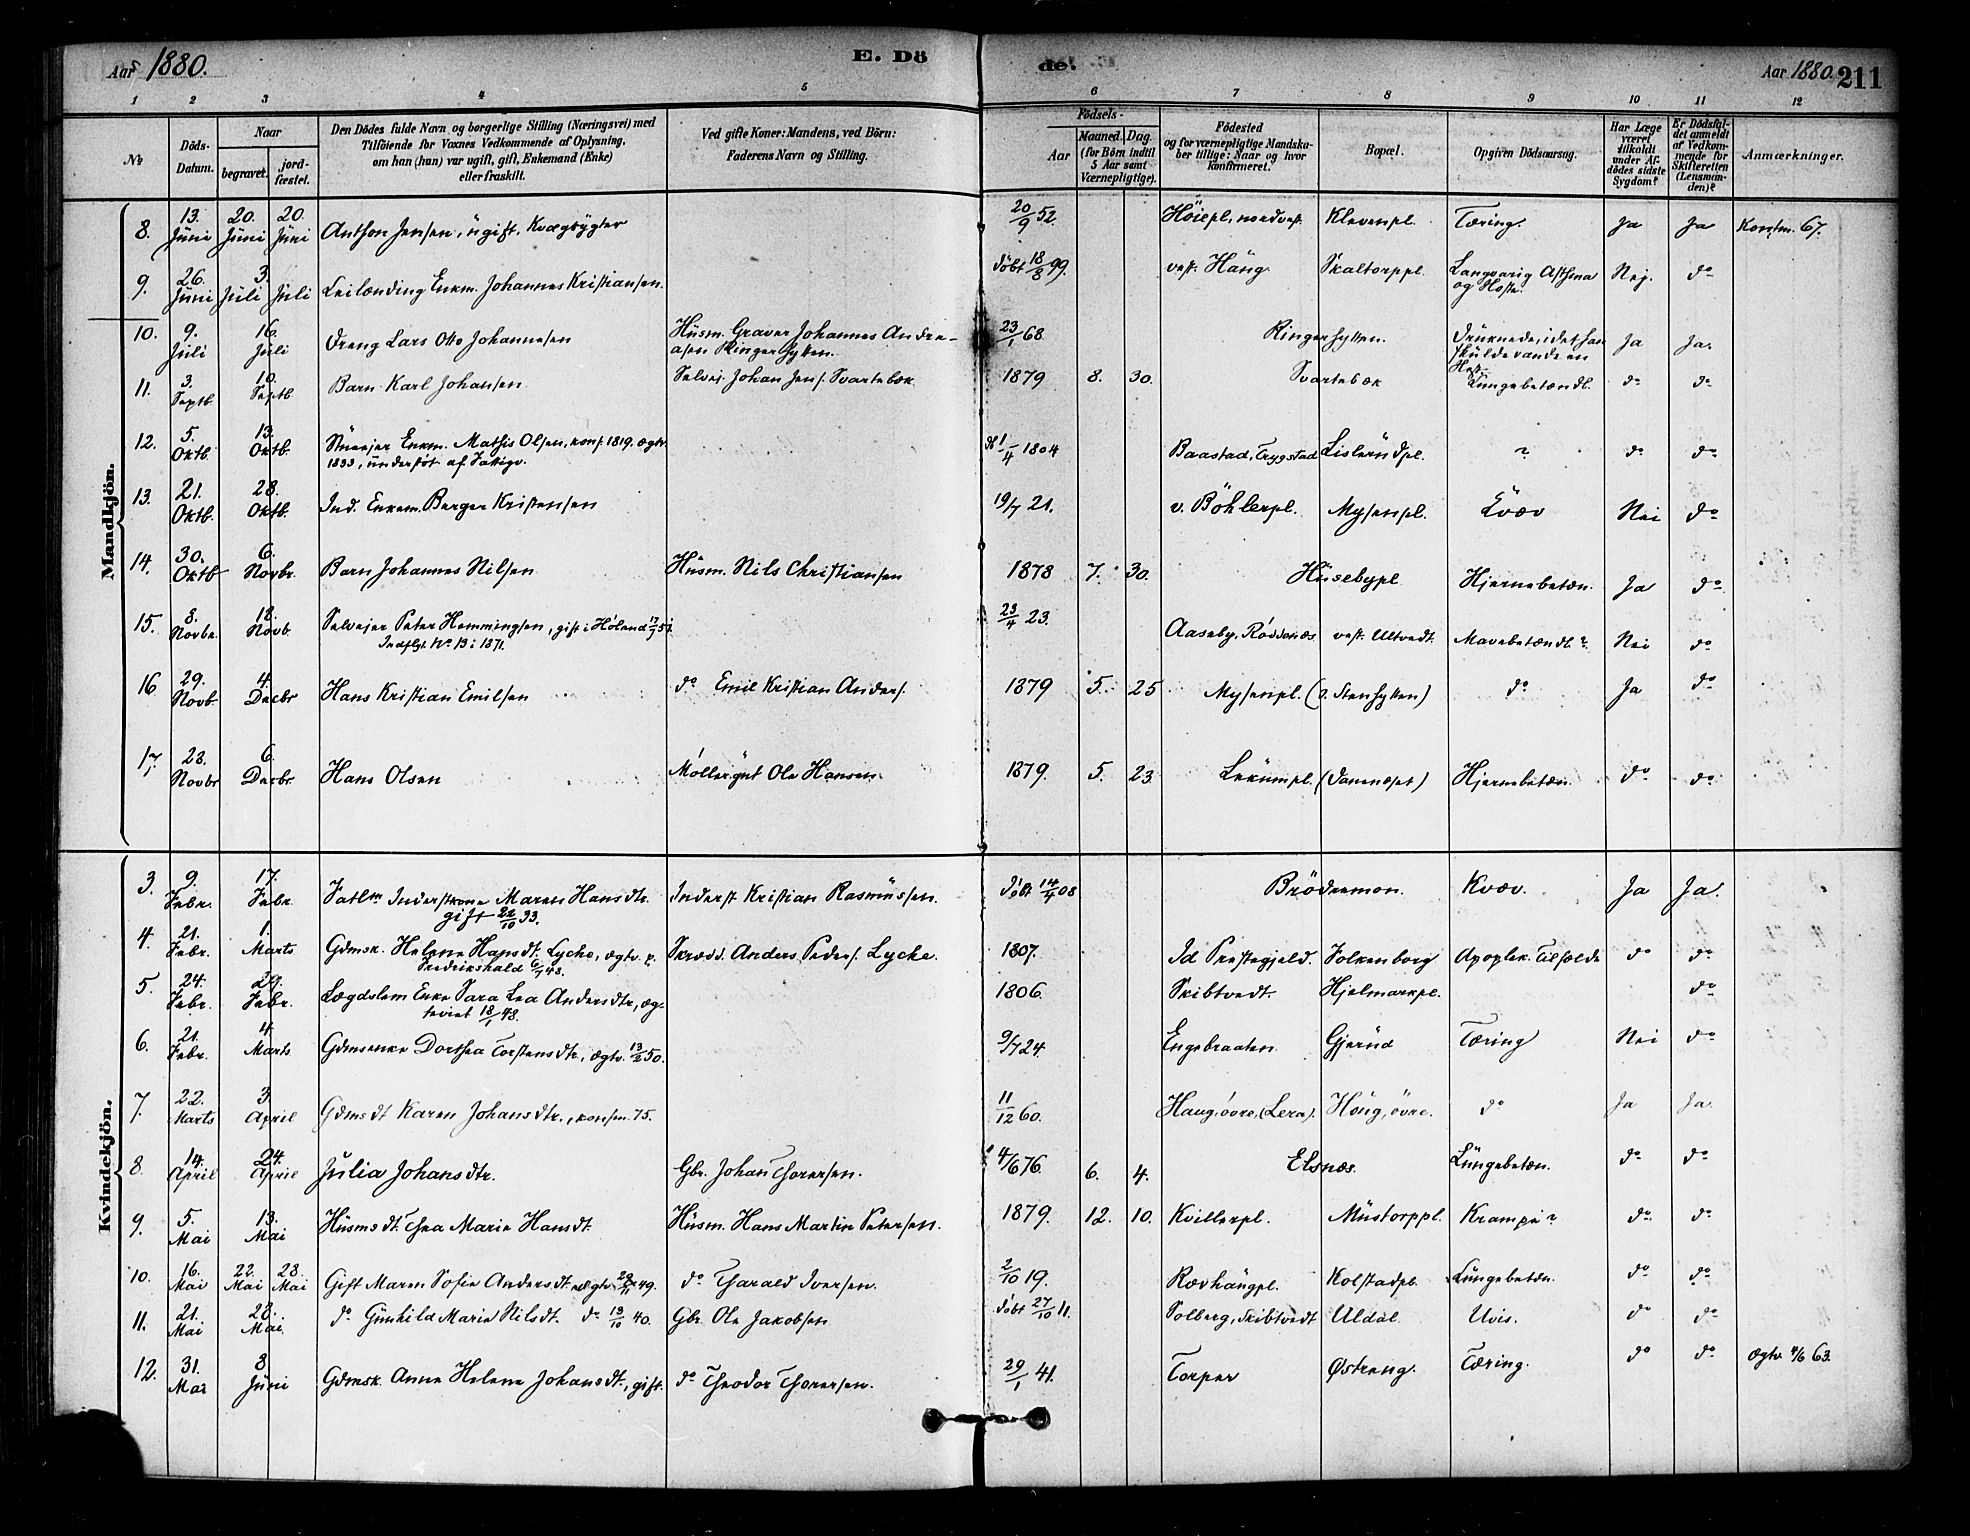 Aar 1880.
E. Dö
de.
Aar 1880.
211
1 2 3 4 5 6 7 8 9 10 11 12
№
Döds-
Datum.
Naar
begravet.
jord-
fæstet.
Den Dödes fulde Navn og borgerlige Stilling (Næringsvei) med
Tilföiende for Voxnes Vedkommende af Oplysning,
om han (hun) var ugift, gift, Enkemand (Enke)
eller fraskilt.
Ved gifte Koner: Mandens, ved Börn:
Faderens Navn og Stilling.
Födsels-
Aar
Maaned. Dag.
(for Börn indtil
5 Aar samt
Værnepligtige).
Födested
og for værnepligtige Mandska-
ber tillige: Naar og hvor
konfirmeret.
Bopæl.
Opgiven Dödsaarsag.
Har Læge
været
tilkaldt
under Af-
dödes sidste
Sygdom?
Er Dödsfal-
det anmeldt
af Vedkom-
mende for
Skifteretten
(Lensman-
den)?
Anmærkninger.
Mandkjön.
8. 13. Juni 20. Juni 20. Juni Anthon Jensen, ugift, Kvægrygter 20/9 52. Höiepl, nordvest. Klevenpl. Tæring. Ja Ja Konfm. 67.
9. 26. Juni 3. Juli Juli Leilænding Enkm. Johannes Kristiansen. döbt 18/8 99. vest. Haug Skaltorppl. Langvarig Asthma
og Hoste. Nej. do
10. 9. Juli 16. Juli Dreng Lars Otto Johannesen Husm. Graver Johannes Andre-
asen Ringerhytten. 23/1 68. Ringerhytten. Druknede, idet han
skulde vande en
Hest. Ja Ja.
11. 3. Septb. 10. Septb Barn Karl Johansen Selvej. Johan Jens. Svartebæk 1879 8. 30. Svartebæk Lungebetændl. do do
12. 5. Oktb. 13. Oktb. Enkm. Mathis Olsen, konf. 1819. ægtv.
1833, understöt. af Fattigv. 1/4 1804 Baastad, Trygstad Lislerudpl. ? do do
13. 21. Oktb. 28. Oktb. Ind. Enkem. Berger Kristensen 19/7 21. v. Böhlerpl. Mysenpl. Kvæv Nei do
14. 30. Oktb 6. Novbr. Barn Johannes Nilsen Husm. Nils Christiansen 1878 7. 30. Husebypl Hjernebetæn. Ja do
15. 8. Novbr. 18. Novb. Selvejer Peter Hemmingsen, gift i Höland 17/7 51.
Indflgt. No. 13 i 1871. 23/4 23. Aaseby, Rödenæs vest. Ultvedt. Mavebetændl? Nei do
16 29. Novb. 4. Decbr Hans Kristian Emilsen do Emil Kristian Anders. 1879 5. 25 Mysenpl. (v. Stenhytten) do Ja do
17. 28. Novbr 6. Decbr. Hans Olsen Möllergut Ole Hansen 1879. 5. 23. Lekumpl. (Damenæset) Hjernebetæn. do do
Kvindekjön.
3. 9. Febr. 17. Febr. Fatlm Inderstkone Maren Hansdtr.
gift 22/10 33. Inderst Kristian Rasmussen. döbt 14/4 08 Brödremon. Kvæv. Ja Ja.
4. 21. Febr. 1. Marts Gdmsk. Helene Hansdt. Lyche, ægtv. p.
Fredrikshald 6/1 48. Skrædd. Anders Peders. Lyche. 1807. Id Prestegjeld. Folkenborg Apoplek. Tilfælde do do
5. 24. Febr. 29. Febr. Lægdslem Enke Sara Lea Andersdtr, æg-
teviet 18/1 48. 1806. Skibtvedt. Hjelmarkpl. do
6. 21. Febr. 4. Marts Gdmsenke Dorthea Torstensdtr, ægtv. 13/2 50. 9/7 24. Engebraaten Gjerud Tæring Nei do
7. 22. Marts 3. April Gdmsdt Karen Johansdtr., konfm. 75. 11/12 60. Haug, övre, (Lera). Haug, övre. do Ja Ja.
8. 14. April 24. April Julia Johansdtr. Gbr. Johan Thoresen. 4/6 76. 6. 4. Elsnæs. Lungebetæn. do do
9. 5. Mai 13. Mai Husmsdt. Thea Marie Hansdt. Husm. Hans Martin Petersen. 1879. 12. 10. Kvillerpl. Mustorppl. Krampe? do do
10. 16. Mai 22. Mai 28. Mai Gift Maren Sofie Andersdt. ægtv. 29/11 49. do Tharald Iversen. 2/10 19. Rævhaugpl. Kolstadpl. Lungebetæn. do do
11. 21. Mai 28. Mai. do Gunhild Marie Nilsdt. do 13/10 40. Gbr. Ole Jakobsen döbt 27/10 11. Solberg, Skibtvedt Uldal Uvis. do do
12. 31. Mai 8. Juni Gdmsk. Anne Helene Johansdt., gift. do Theodor Thoresen. 29/1 41. Torper Østreng. Tæring. do do ægtv. 4/6 63.